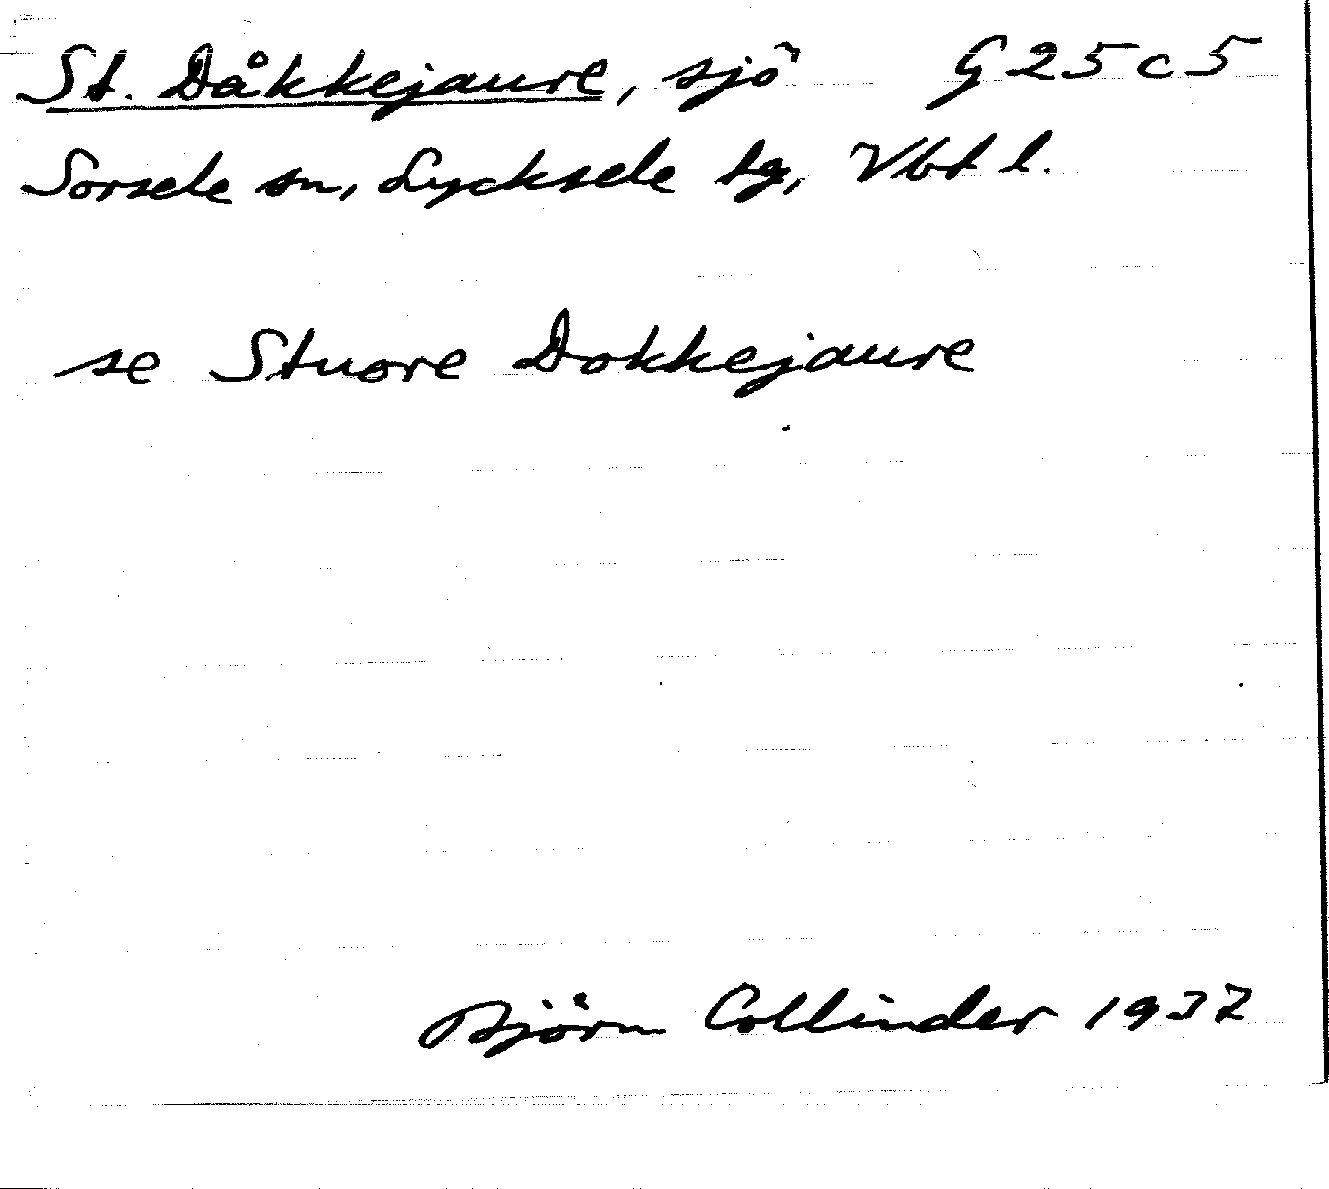 St. Dåkkejaure, sjö G25c5
Sorsele sn, Lycksele tg, Vbt l.
se Stuore Dokkejaure
Björn Collinder 1937